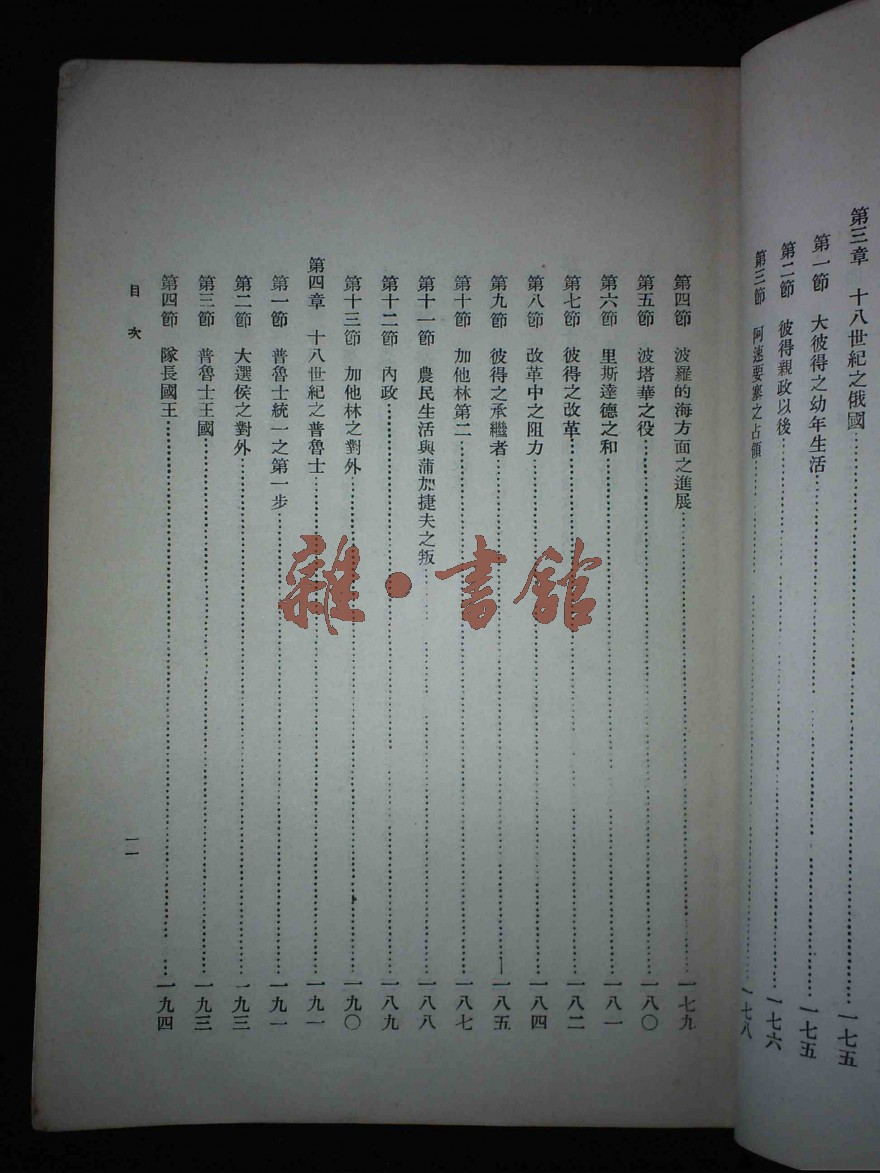 第三章　十八世紀之俄國……一七五
第一節　大彼得之幼年生活……一七五
第二節　彼得親政以後……一七六
第三節　阿速要塞之占領……一七八
第四節　波羅的海方面之進展……一七九
第五節　波塔華之役……一八〇
第六節　里斯達德之和……一八一
第七節　彼得之改革……一八二
第八節　改革中之阻力……一八四
第九節　彼得之承繼者……一八五
第十節　加他林第二……一八七
第十一節　農民生活與蒲加捷夫之叛……一八八
第十二節　內政……一八九
第十三節　加他林之對外……一九〇
第四章　十八世紀之普魯士……一九一
第一節　普魯士統一之第一步……一九一
第二節　大選侯之對外……一九三
第三節　普魯士王國……一九三
第四節　隊長國王……一九四
目次
一一
雜·書館